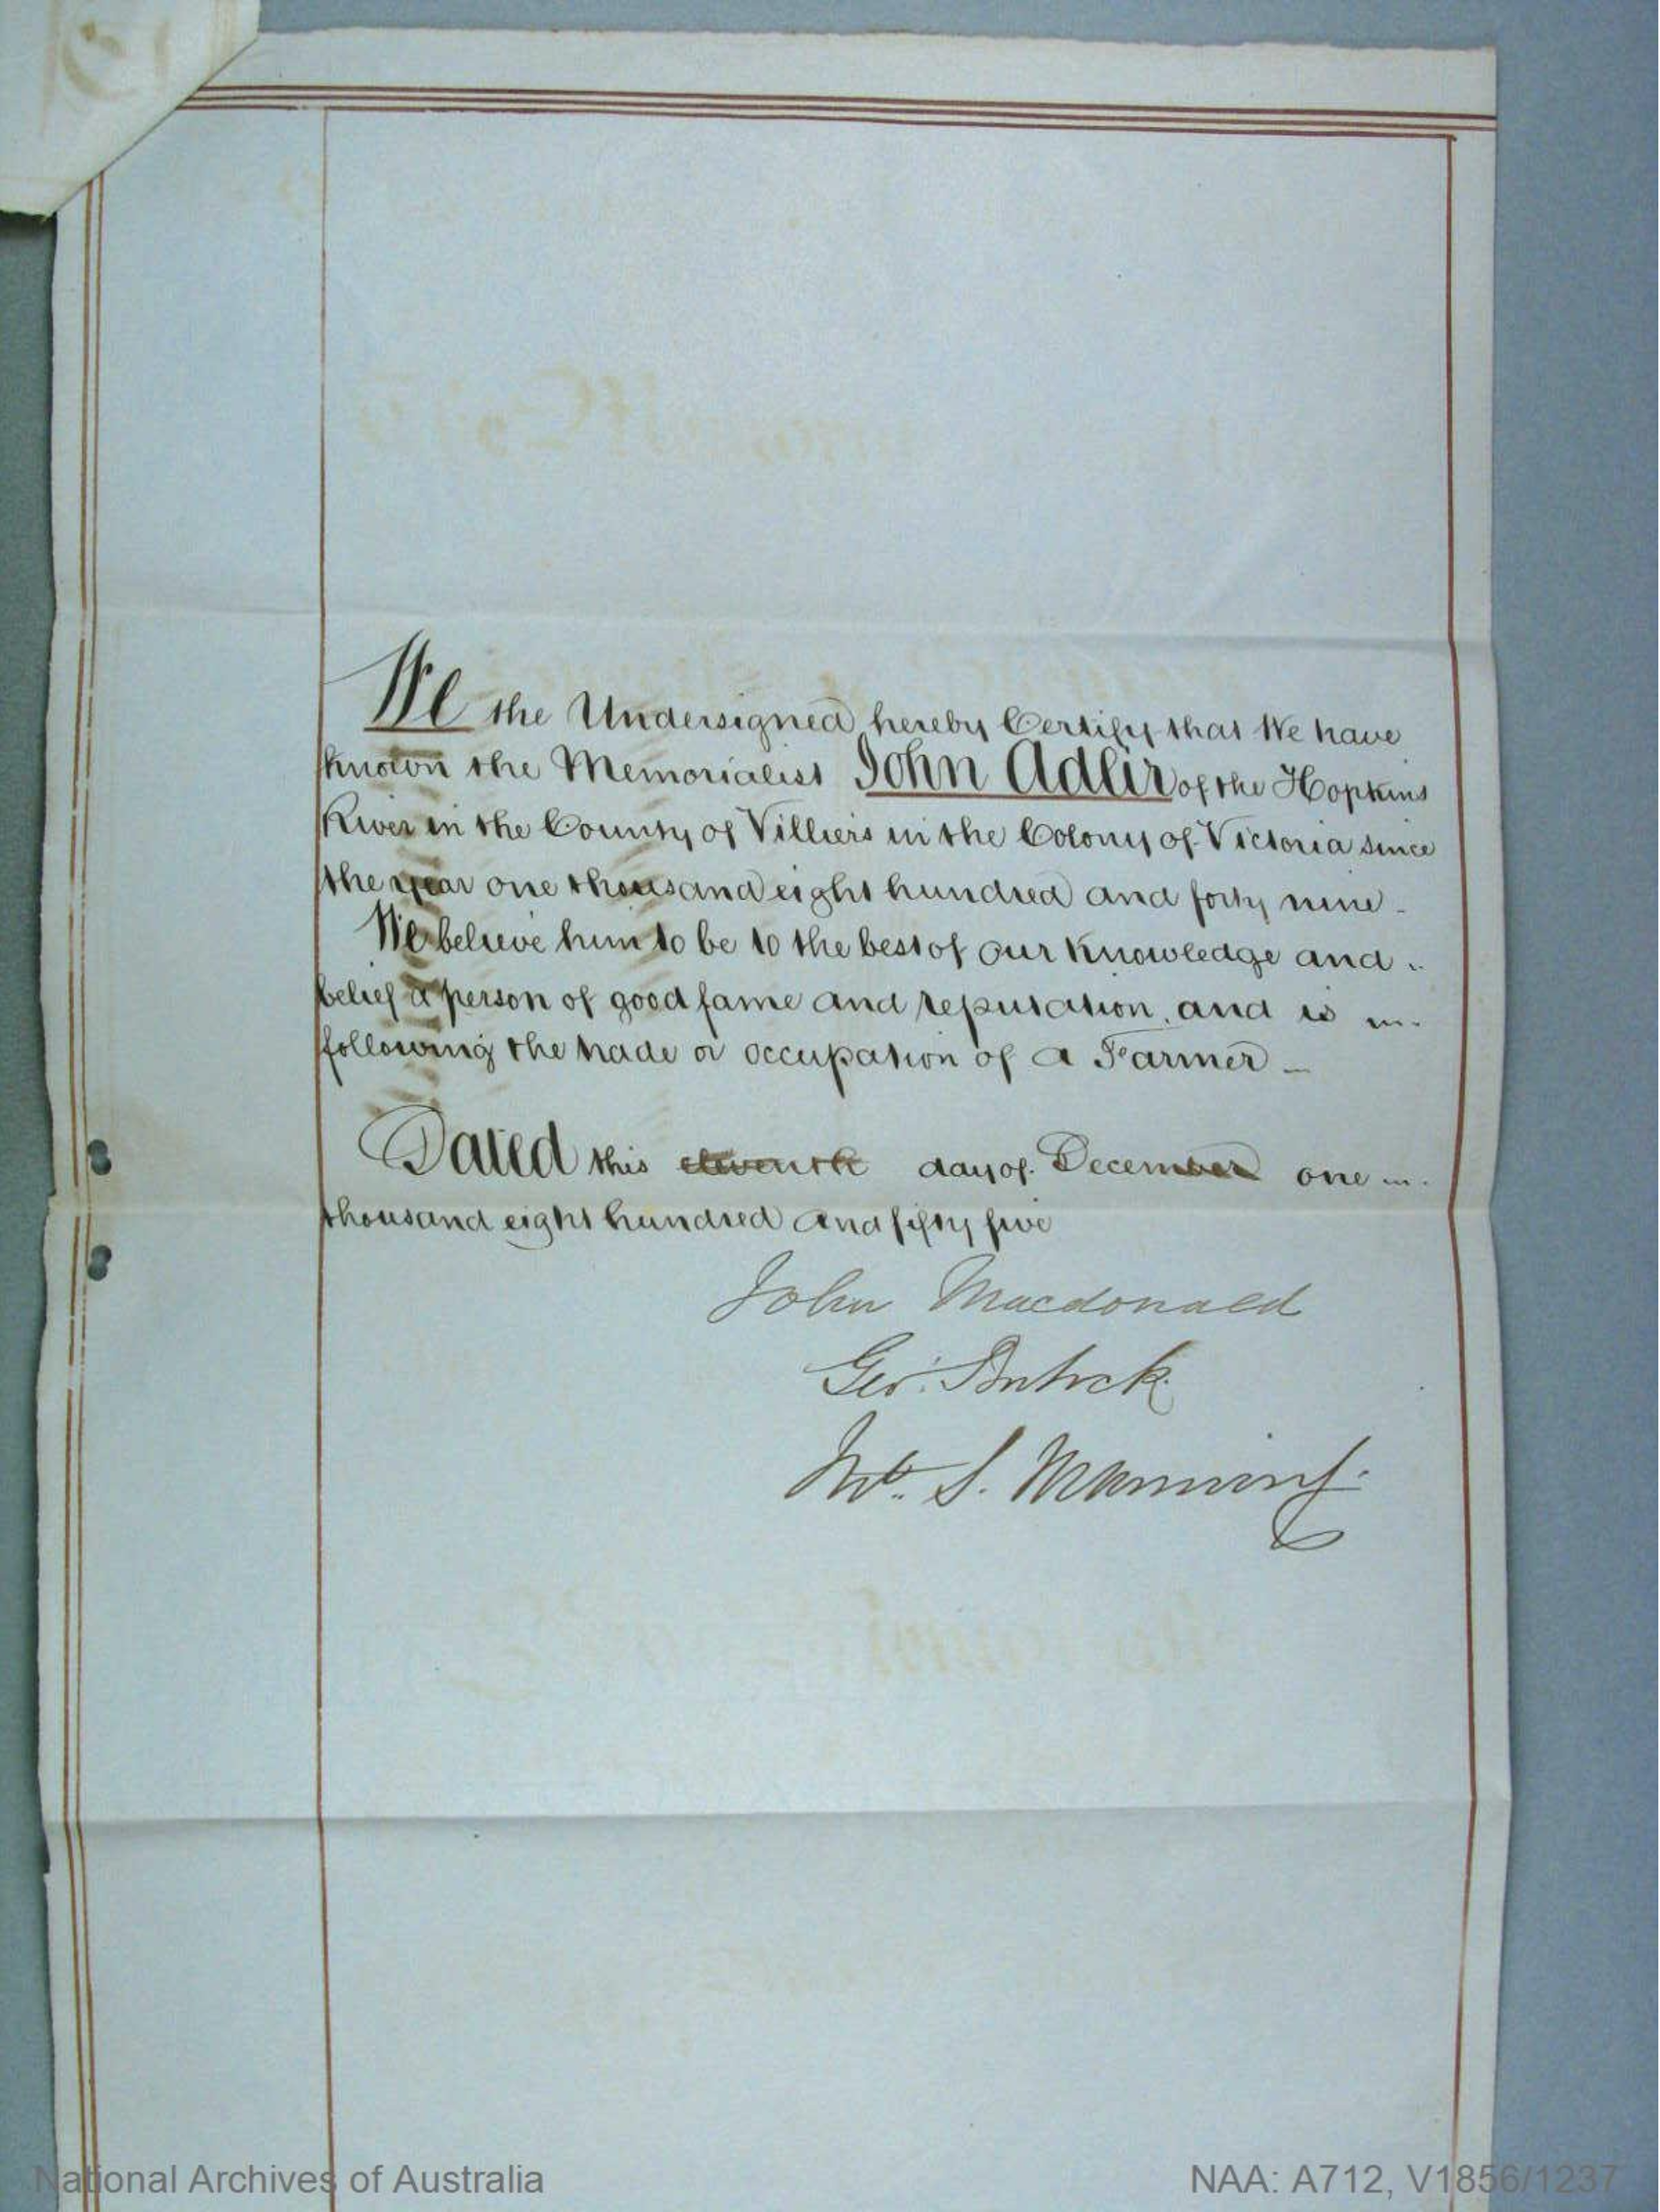 We the Undersigned hereby Certify that We have
known the Memorialist John Adler of the Hopkins
River in the County of Villiers in the Colony of Victoria since
the year one thousand eight hundred and forty nine -
We believe him to be to the best of our Knowledge and
belief a person of good fame and reputation, and is
following the trade or occupation of a Farmer -
Dated this eleventh day of December one
thousand eight hundred and fifty five
John Macdonald
Geo:
S. Manning
National Archives of Australia
NAA: A712, V1856/1237